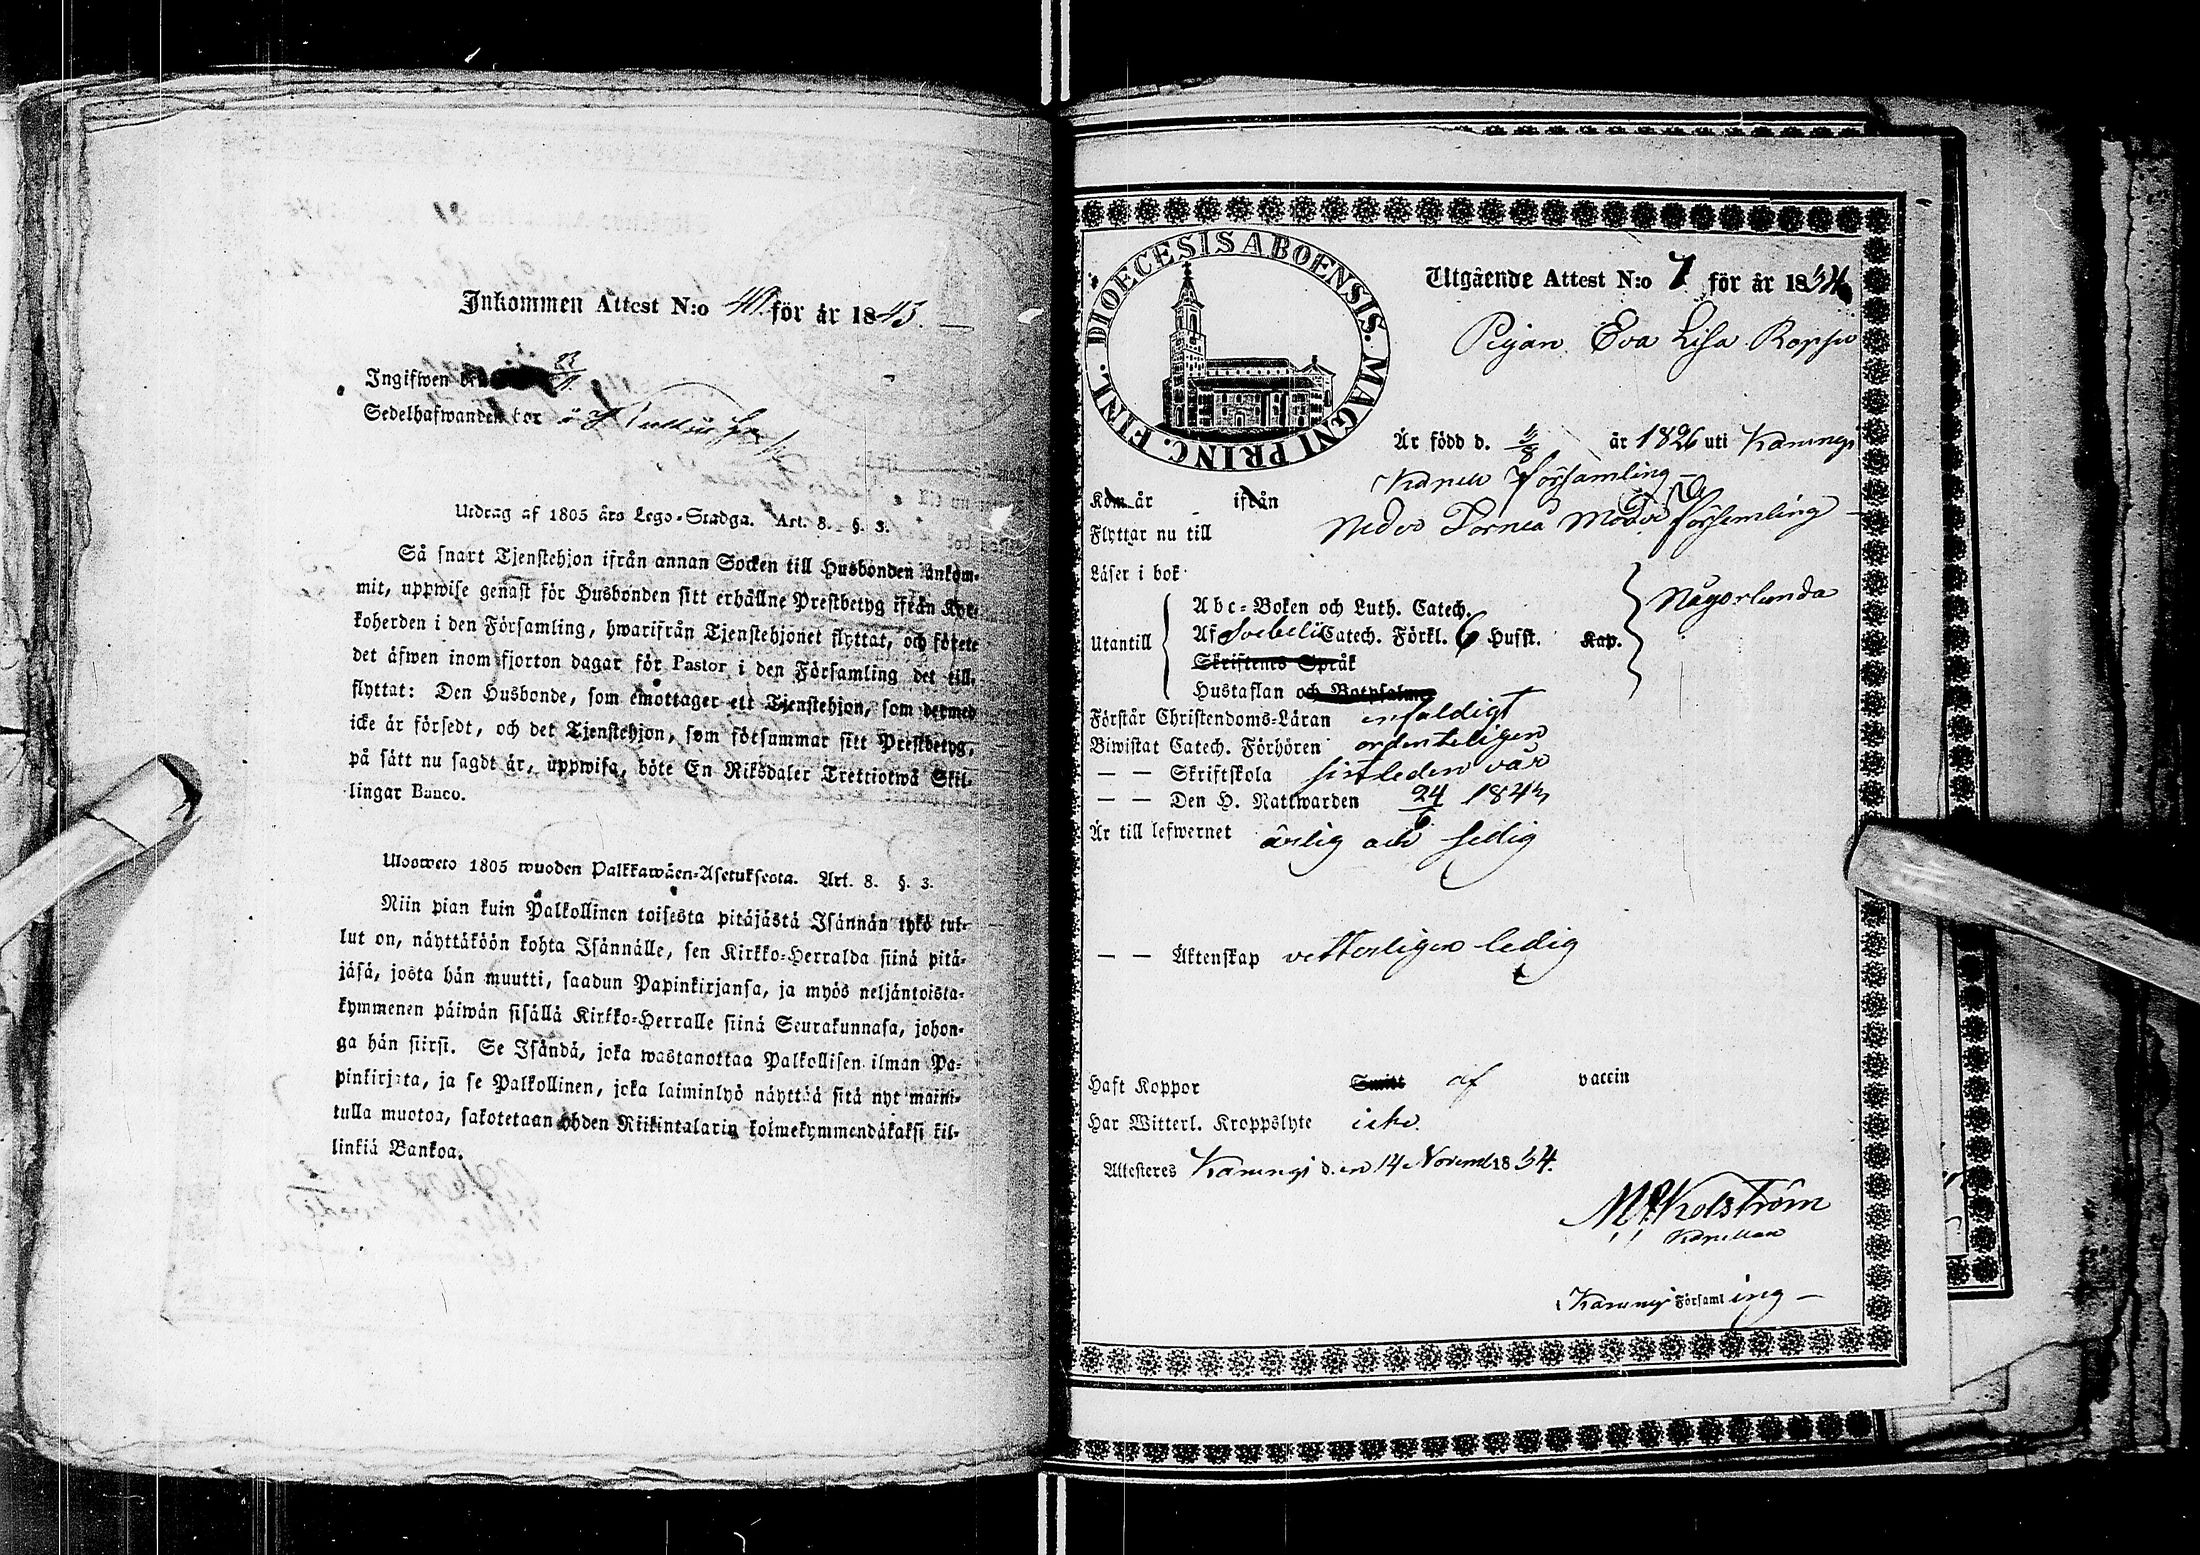 Inkommen Attest N:o 40. för år 1843.
Ingifwen den
Sedelhafwanden bor
Utdrag af 1805 års Lego-Stadga. Art. 8. §. 3.
Så snart Tjenstehjon ifrån annan Socken till Husbonden ankom-
mit, uppwise genast för Husbonden sitt erhållne Prestbetyg ifrån Kyr-
koherden i den Församling, hwarifrån Tjenstehjonet flyttat, och förete
det äfwen inom fjorton dagar för Pastor i den Församling det till-
flyttat: Den Husbonde, som emottager ett Tjenstehjon, som dermed
icke är försedt, och det Tjenstehjon, som försummar sitt Prestbetyg,
på sätt nu sagdt är, uppwisa, böte En Riksdaler Trettiotwå Skil-
lingar Banco.
Ulosweto 1805 wuoden Palkkawäen-Asetuksesta. Art. 8. §. 3.
Niin pian kuin Palkollinen toisesta pitäjästä Isännän tykö tul-
lut on, näyttäköön kohta Isännälle, sen Kirkko-Herralda siinä pitä-
jäsä, josta hän muutti, saadun Papinkirjansa, ja myös neljäntoista-
kymmenen päiwän sisällä Kirkko-Herralle siinä Seurakunnasa, johon-
ga hän siirsi. Se Isändä, joka wastanottaa Palkollisen ilman Pa-
pinkirjata, ja se Palkollinen, joka laiminlyö näyttää sitä nyt maini-
tulla muotoa, sakotetaan yhden Riikintalarin kolmekymmendäkaksi kil-
linkiä Bankoa.
DIOECESIS ABOENSIS. MAGNI PRINC. FINL.
Utgående Attest N:o 7 för år 18
Pigan Eva Lisa Koppo
Är född d. år 1826 uti Karungi
Kapell församling
Kom år ifrån
Flyttar nu till Neder Torneå Moder församling
Läser i bok
Någorlunda
Abc-Boken och Luth. Catech.
Utantill Af Svebelii Catech. Förkl. 6 Husst. Kap.
Skriftenes Språk
Hustaflan och Botpsalmer
Förstår Christendoms-Läran enfaldigt
Biwistat Catech. Förhören ordenteligen
— — Skriftskola sistleden vår
— — Den H. Nattwarden 24/6 1843
Är till lefwernet ärlig och sedig
— — Äktenskap vetterligen ledig
Haft Koppor Smitt af vaccin
Har Witterl. Kroppslyte icke.
Attesteres Karungi d. en 14 Novemb 18
Kapellan
Karungi Församling